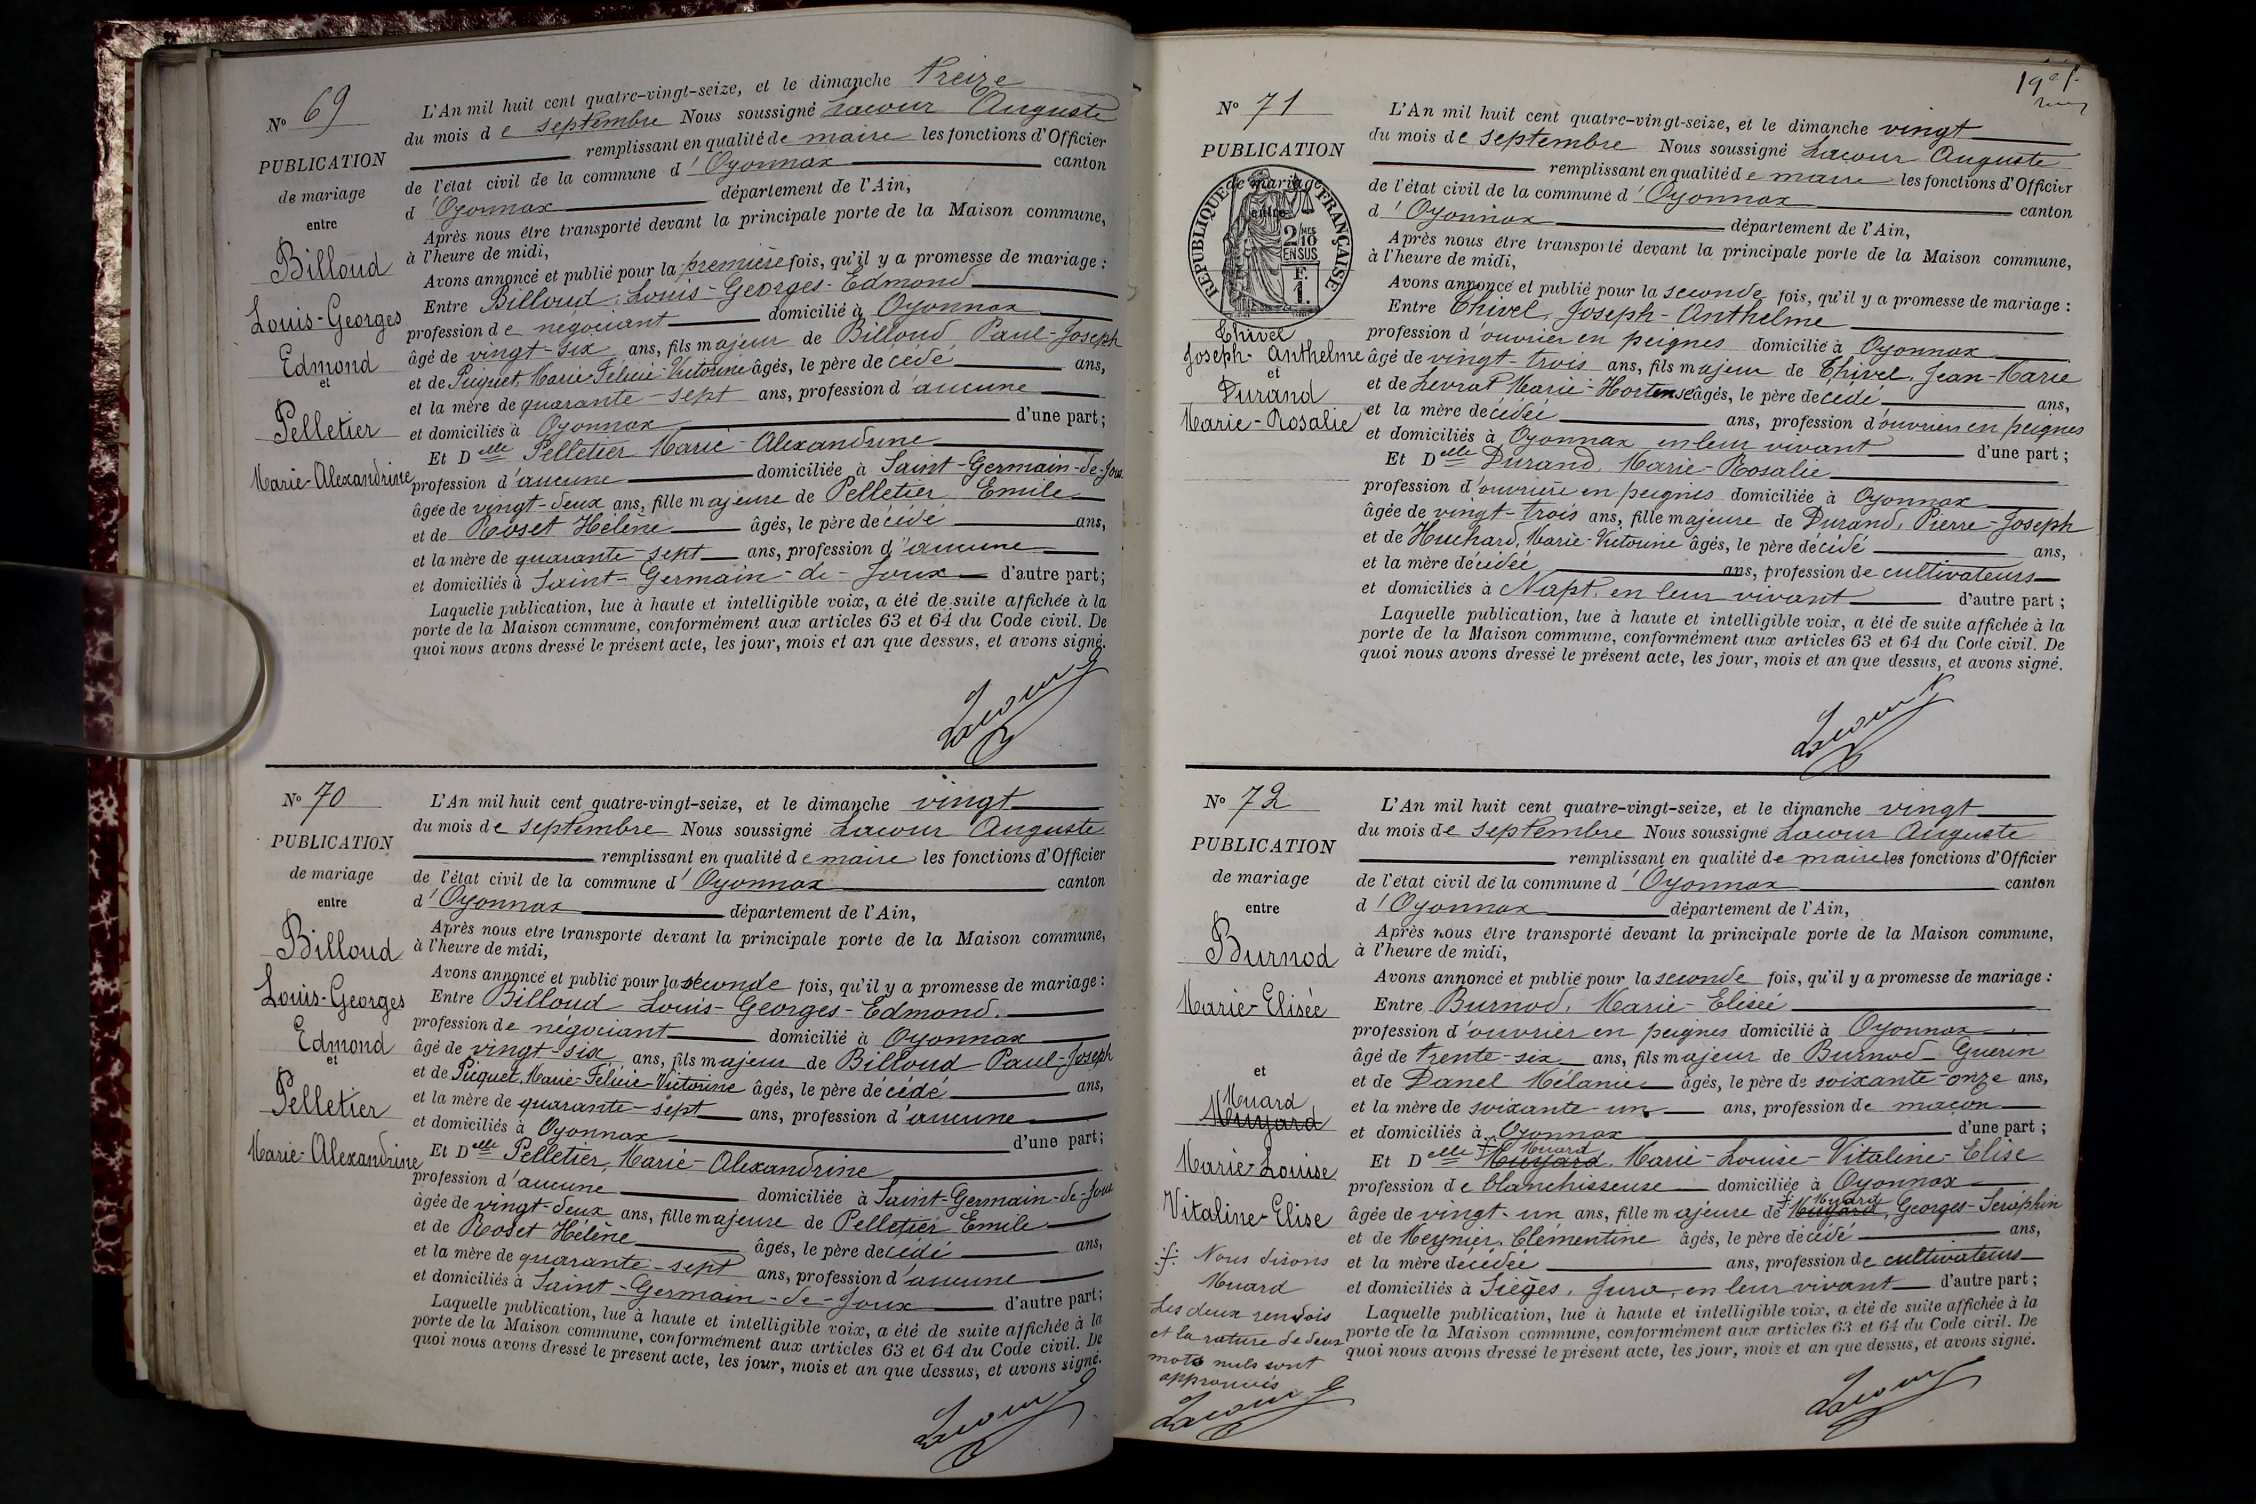 Nº 69
PUBLICATION
de mariage
entre
Billoud
Louis-Georges
Edmond
et
Pelletier
Marie-Alexandrine
L'An mil huit cent quatre-vingt-seize, et le dimanche treize
du mois de septembre Nous soussigné Lacour Auguste
remplissant en qualité de maire les fonctions d'Officier
de l'état civil de la commune d'Oyonnax canton
d'Oyonnax département de l'Ain,
Après nous être transporté devant la principale porte de la Maison commune,
à l'heure de midi,
Avons annoncé et publié pour la première fois, qu'il y a promesse de mariage :
Entre Billoud, Louis-Georges-Edmond
profession de négociant domicilié à Oyonnax
âgé de vingt-six ans, fils majeur de Billoud Paul-Joseph
et de Piquet, Marie-Félicie-Victorine âgés, le père décédé ans,
et la mère de quarante-sept ans, profession d'aucune
et domiciliés à Oyonnax d'une part ;
Et Delle Pelletier Marie-Alexandrine
profession d'aucune domiciliée à Saint-Germain-de-Joux
âgée de vingt-deux ans, fille majeure de Pelletier Emile
et de Roset Hélène âgés, le père décédé ans,
et la mère de quarante-sept ans, profession d'aucune
et domiciliés à Saint-Germain-de-Joux d'autre part ;
Laquelle publication, lue à haute et intelligible voix, a été de suite affichée à la
porte de la Maison commune, conformément aux articles 63 et 64 du Code civil. De
quoi nous avons dressé le présent acte, les jour, mois et an que dessus, et avons signé.
Lacour
Nº 70
PUBLICATION
de mariage
entre
Billoud
Louis-Georges
Edmond
et
Pelletier
Marie-Alexandrine
L'An mil huit cent quatre-vingt-seize, et le dimanche vingt
du mois de septembre Nous soussigné Lacour Auguste
remplissant en qualité de maire les fonctions d'Officier
de l'état civil de la commune d'Oyonnax canton
d'Oyonnax département de l'Ain,
Après nous être transporté devant la principale porte de la Maison commune,
à l'heure de midi,
Avons annoncé et publié pour la seconde fois, qu'il y a promesse de mariage :
Entre Billoud Louis-Georges-Edmond.
profession de négociant domicilié à Oyonnax
âgé de vingt-six ans, fils majeur de Billoud Paul-Joseph
et de Piquet, Marie-Félicie-Victorine âgés, le père décédé ans,
et la mère de quarante-sept ans, profession d'aucune
et domiciliés à Oyonnax d'une part ;
Et Delle Pelletier, Marie-Alexandrine
profession d'aucune domiciliée à Saint-Germain-de-Joux
âgée de vingt-deux ans, fille majeure de Pelletier Emile
et de Roset Hélène âgés, le père décédé ans,
et la mère de quarante-sept ans, profession d'aucune
et domiciliés à Saint-Germain-de-Joux d'autre part ;
Laquelle publication, lue à haute et intelligible voix, a été de suite affichée à la
porte de la Maison commune, conformément aux articles 63 et 64 du Code civil. De
quoi nous avons dressé le présent acte, les jour, mois et an que dessus, et avons signé.
Lacour
Nº 71
PUBLICATION
de mariage
entre
RÉPUBLIQUE FRANÇAISE
2/10
EN SUS
F.
1.
Chivel
Joseph-Anthelme
et
Durand
Marie-Rosalie
L'An mil huit cent quatre-vingt-seize, et le dimanche vingt
du mois de septembre Nous soussigné Lacour Auguste
remplissant en qualité de maire les fonctions d'Officier
de l'état civil de la commune d'Oyonnax canton
d'Oyonnax département de l'Ain,
Après nous être transporté devant la principale porte de la Maison commune,
à l'heure de midi,
Avons annoncé et publié pour la seconde fois, qu'il y a promesse de mariage :
Entre Chivel, Joseph-Anthelme
profession d'ouvrier en peignes domicilié à Oyonnax
âgé de vingt-trois ans, fils majeur de Chivel, Jean-Marie
et de Levrat Marie-Hortense âgés, le père décédé ans,
et la mère décédée ans, profession d'ouvriers en peignes
et domiciliés à Oyonnax en leur vivant d'une part ;
Et Delle Durand, Marie-Rosalie
profession d'ouvrière en peignes domiciliée à Oyonnax
âgée de vingt-trois ans, fille majeure de Durand, Pierre-Joseph
et de Huchard, Marie-Victorine âgés, le père décédé ans,
et la mère décédée ans, profession de cultivateurs
et domiciliés à Napt, en leur vivant d'autre part ;
Laquelle publication, lue à haute et intelligible voix, a été de suite affichée à la
porte de la Maison commune, conformément aux articles 63 et 64 du Code civil. De
quoi nous avons dressé le présent acte, les jour, mois et an que dessus, et avons signé.
Lacour
Nº 72
PUBLICATION
de mariage
entre
Burnod
Marie-Elisée
et
Muard
Muyard
Marie-Louise
Vitaline-Elise
Nous disons
Muard
Les deux renvois
et la rature de deux
mots nuls sont
approuvés
Lacour
L'An mil huit cent quatre-vingt-seize, et le dimanche vingt
du mois de septembre Nous soussigné Lacour Auguste
remplissant en qualité de maire les fonctions d'Officier
de l'état civil de la commune d'Oyonnax canton
d'Oyonnax département de l'Ain,
Après nous être transporté devant la principale porte de la Maison commune,
à l'heure de midi,
Avons annoncé et publié pour la seconde fois, qu'il y a promesse de mariage :
Entre Burnod, Marie-Elisée
profession d'ouvrier en peignes domicilié à Oyonnax
âgé de trente-six ans, fils majeur de Burnod Guerin
et de Danel Mélanie âgés, le père de soixante-onze ans,
et la mère de soixante-un ans, profession de maçon
et domiciliés à Oyonnax d'une part ;
Muard
Et Delle Muyard, Marie-Louise-Vitaline-Elise
profession de blanchisseuse domiciliée à Oyonnax
Muard
âgée de vingt-un ans, fille majeure de Muyard, Georges-Séraphin
et de Meynier, Clémentine âgés, le père décédé ans,
et la mère décédée ans, profession de cultivateurs
et domiciliés à Sièges, Jura, en leur vivant d'autre part ;
Laquelle publication, lue à haute et intelligible voix, a été de suite affichée à la
porte de la Maison commune, conformément aux articles 63 et 64 du Code civil. De
quoi nous avons dressé le présent acte, les jour, mois et an que dessus, et avons signé.
Lacour